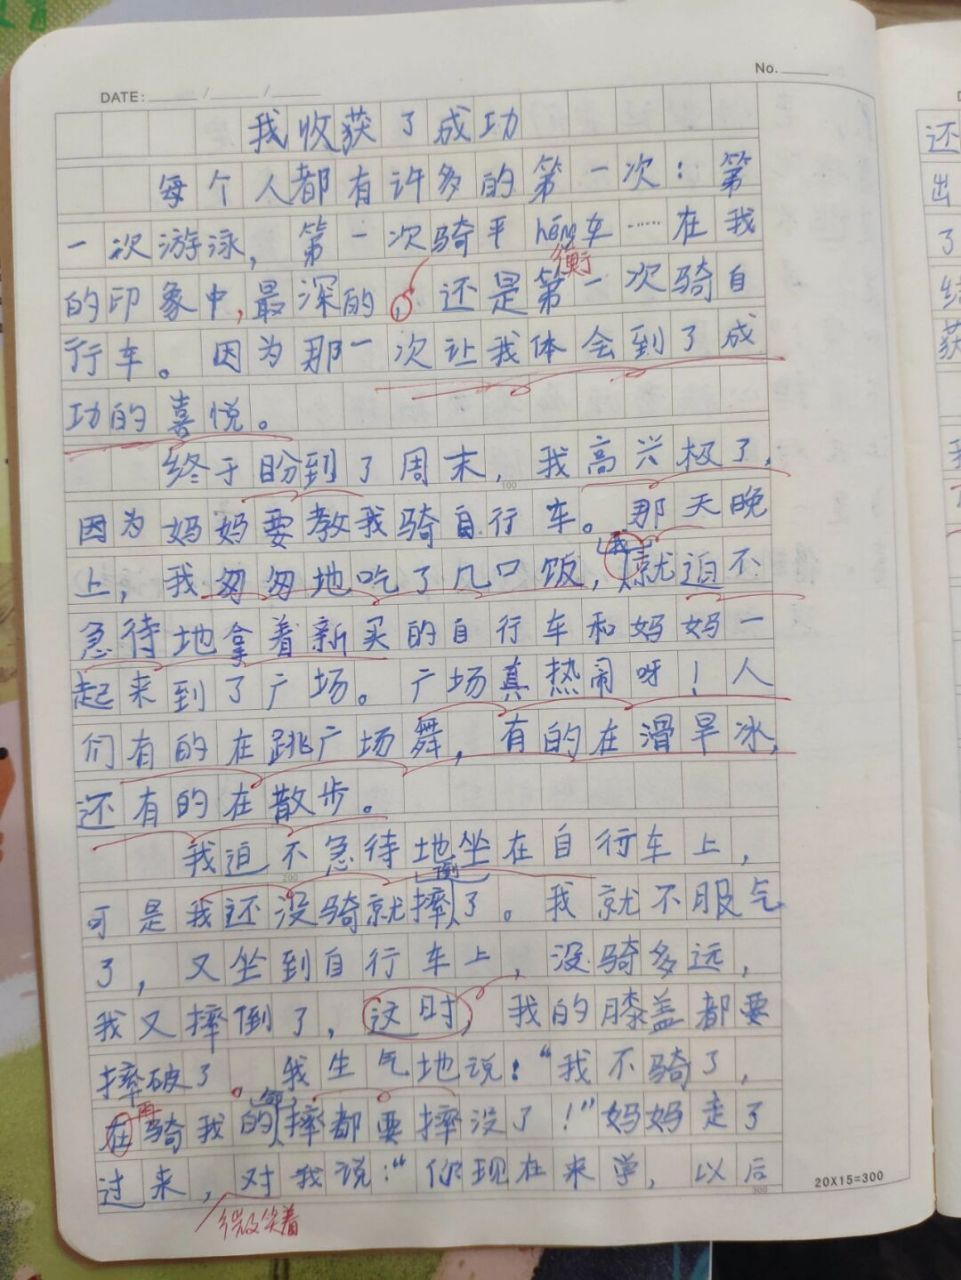 No.
DATE: / /
我收获了成功
每个人都有许多的第一次：第
一次游泳，第一次骑平héng车……在我
衡
的印象中,最深的，还是第一次骑自
行车。因为那一次让我体会到了成
功的喜悦。
终于盼到了周末，我高兴极了，
100
因为妈妈要教我骑自行车。那天晚
我
上，我匆匆地吃了几口饭，就迫不
急待地拿着新买的自行车和妈妈一
起来到了广场。广场真热闹呀！人
们有的在跳广场舞，有的在滑旱冰，
还有的在散步。
我迫不急待地坐在自行车上，
200
倒
可是我还没骑就摔了。我就不服气
了，又坐到自行车上，没骑多远，
我又摔倒了，这时，我的膝盖都要
摔破了。我生气地说：“我不骑了，
再
在骑我的摔都要摔没了！”妈妈走了
过来，对我说：“你现在来学，以后
300
微笑着
20X15=300
还
出
了
获